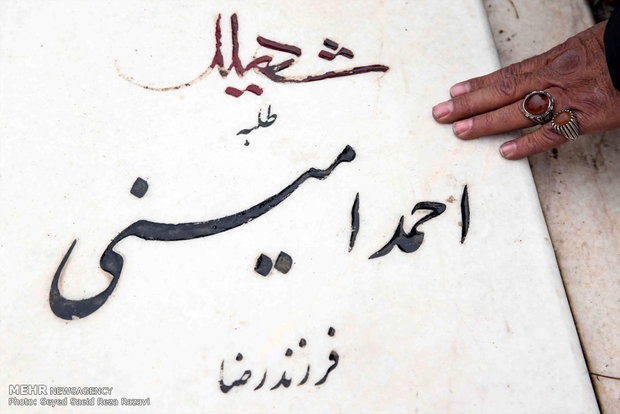 شهید
طلبه
احمد امینی
فرزند رضا
MEHR NEWSAGENCY
Photo: Seyed Saeid Reza Razavi